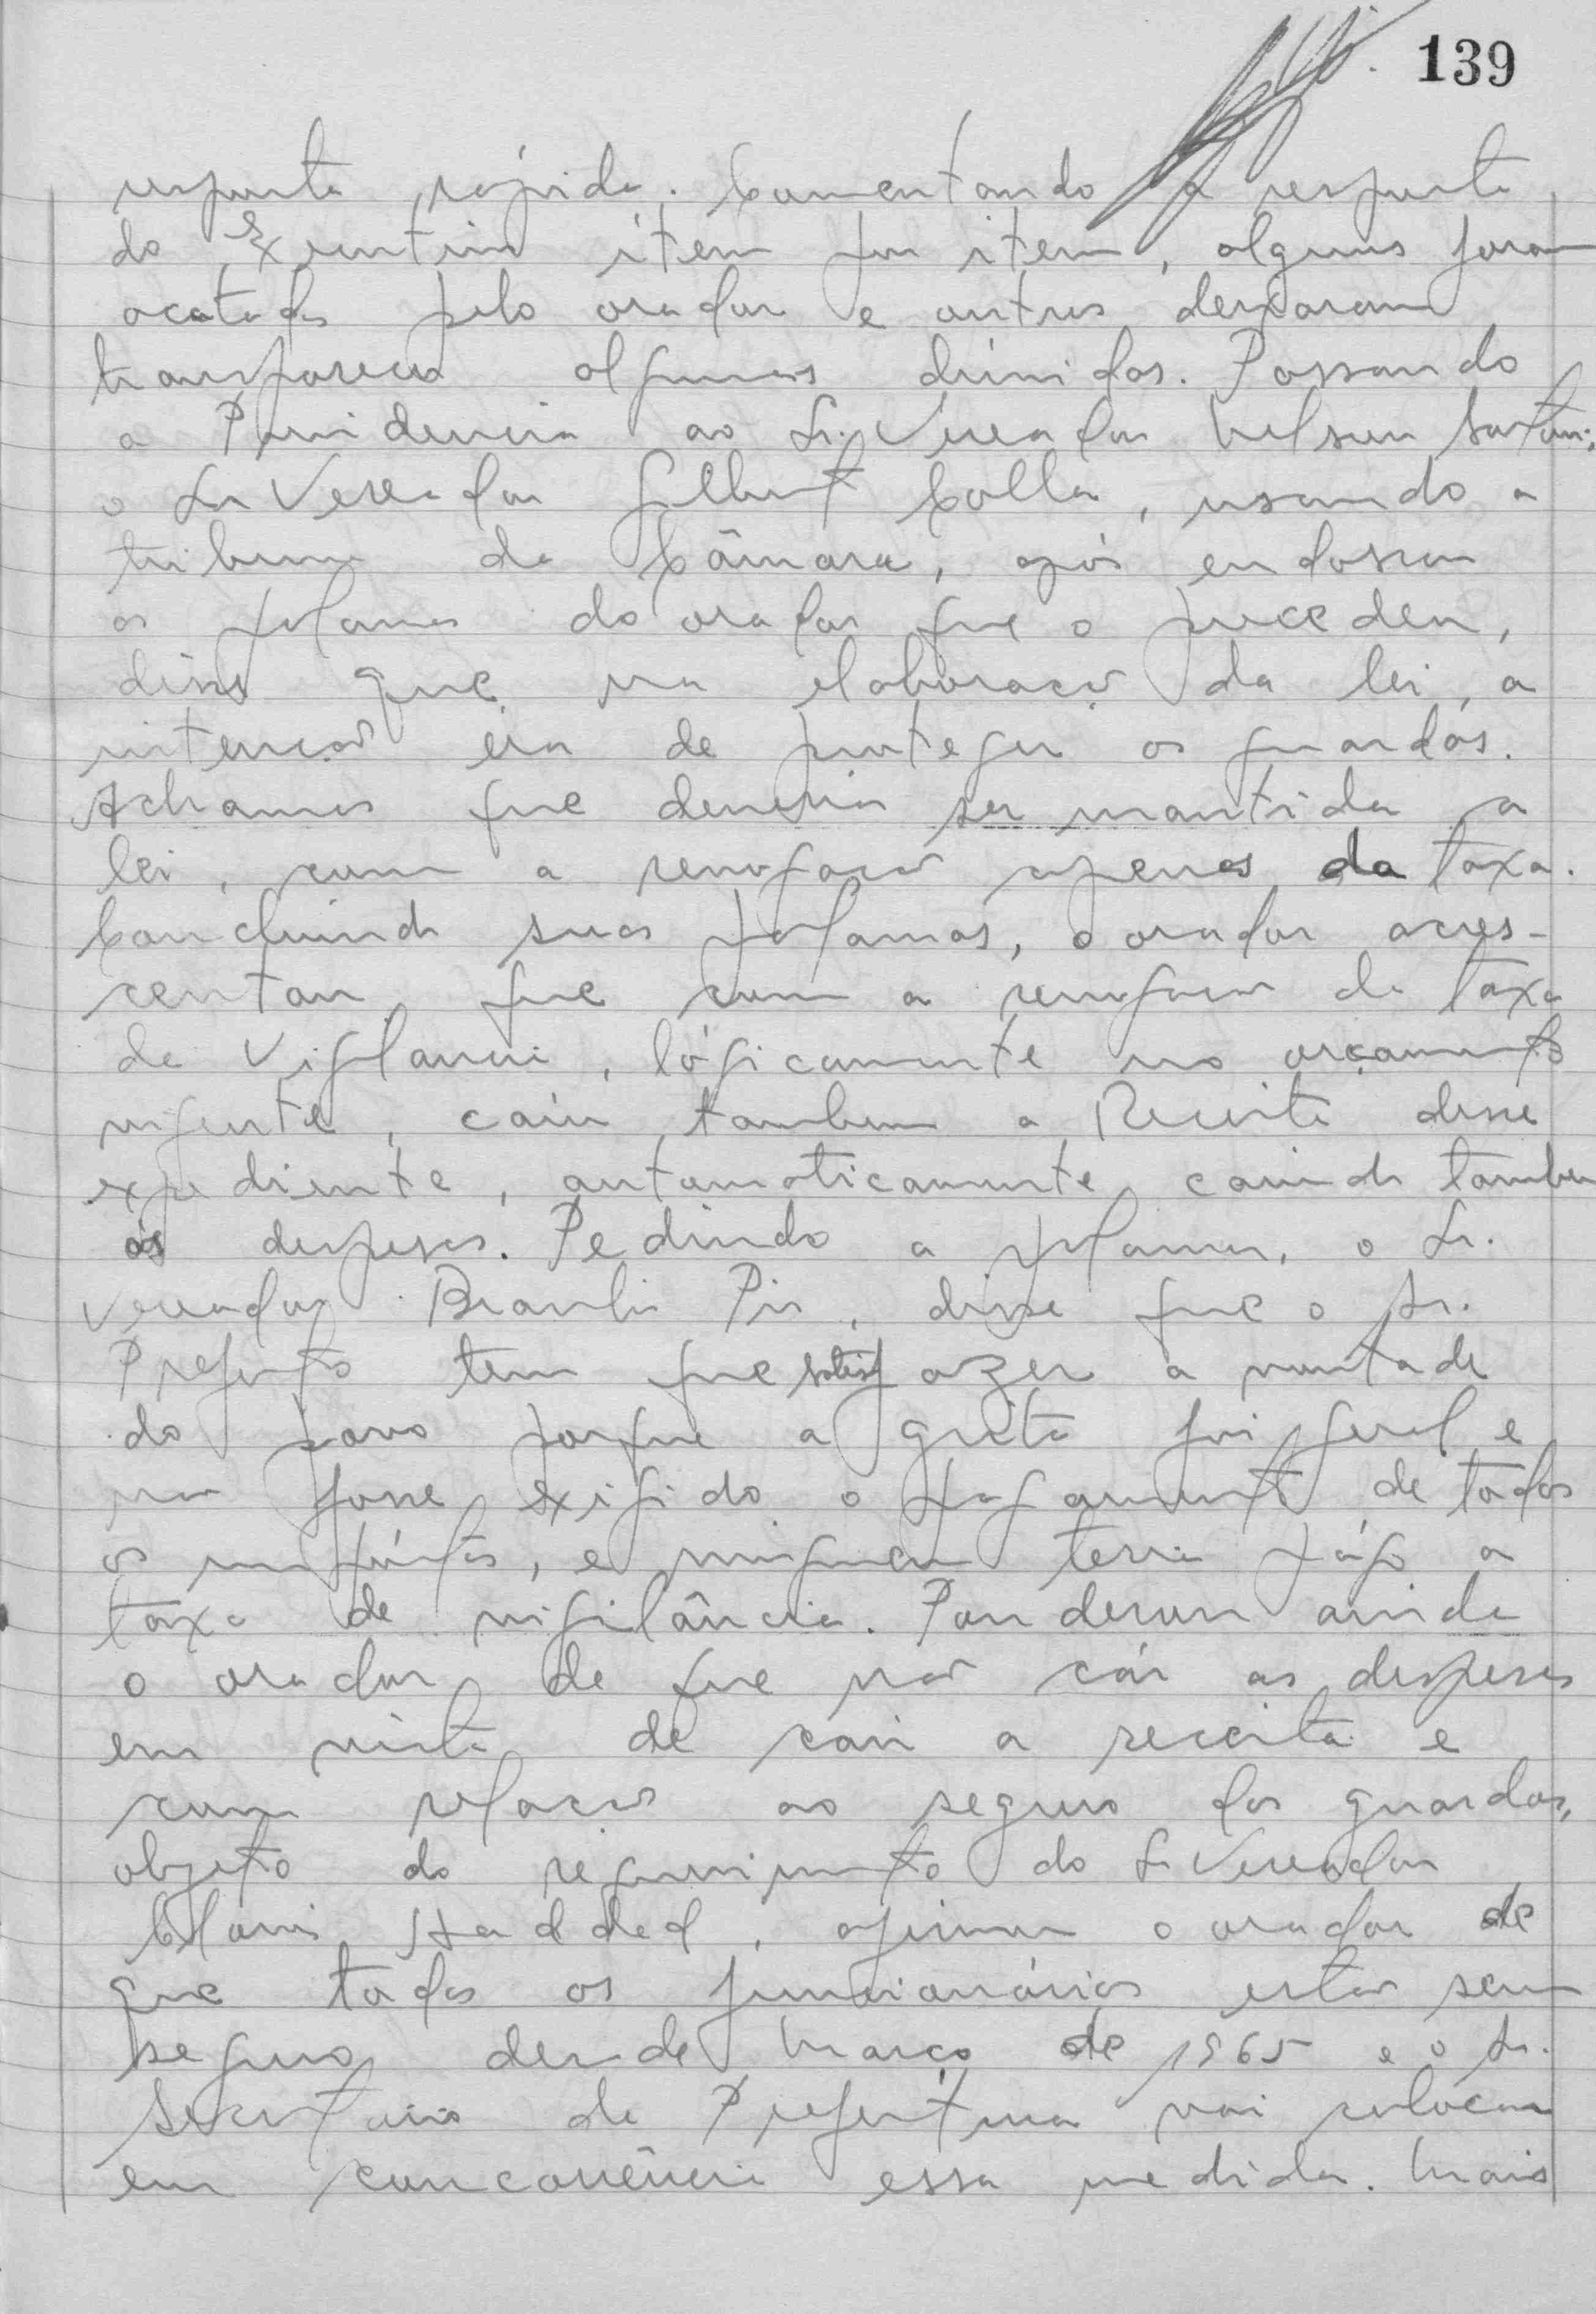 139
resposta rápida. Comentando a resposta
do Executivo ítem por item, alguns foram
acatados pelo orador e outros deixaram
transparecer algumas dúvidas. Passando
a Presidencia ao Sr. Vereador Nelson
o Sr Vereador Gilbert Colla, usando a
tribuna da Câmara, após endossar
as palavras do orador que o precedeu,
disse que na elaboração da lei, a
intenção éra de proteger os guardas.
Achamos que deveria ser mantida a
lei, com a revogação apenas da taxa.
Concluindo suas palavras, o orador acres-
centou que com a revogação da taxa
de Vigilancia, lógicamente no orçamento
vigente, caiu tambem a Receita desse
expediente, automaticamente caindo tambem
as despesas. Pedindo a palavra, o Sr.
Vereador Braulio Pio, disse que o Sr.
Prefeito tem que satisfazer a vontade
do povo porque a grita foi geral e
se fosse exigido o pagamento de todos
os impóstos, e ninguem teria págo a
taxa de vigilância. Ponderou ainda
o orador de que não cái as despesas
em vista de cair a receita e
com relação ao seguro dos guardas,
objeto do requerimento do Sr Vereador
Clovis Haddad, afirmou o orador de
que todos os funcionários estão sem
seguro desde Março de 1965 e o Sr.
Secretario da Prefeitura vai colocar
em concorrência essa medida. Mais